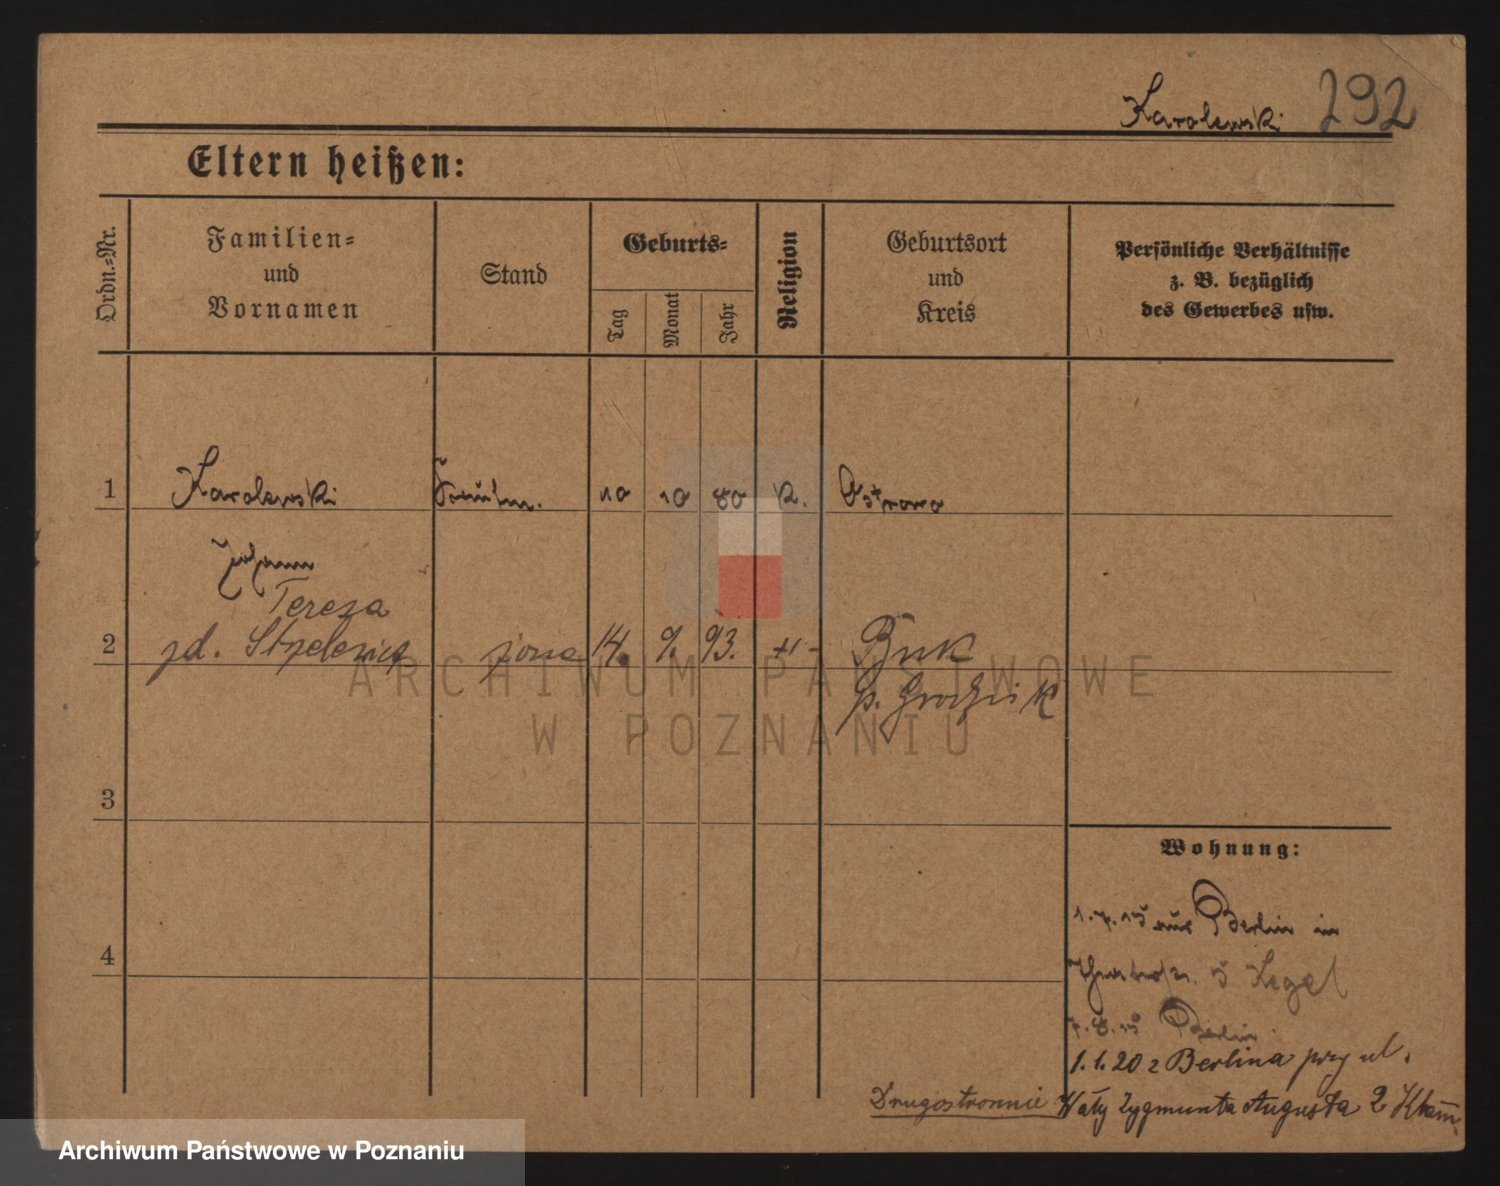 Karolewski 292
Eltern heißen:
Ordn.-Nr.
Familien-
und
Vornamen
Stand
Geburts-
Tag
Monat
Jahr
Religion
Geburtsort
und
Kreis
Persönliche Verhältnisse
z. B. bezüglich
des Gewerbes usw.
1 Karolewski 10 10 80 K. Ostrowo
Johann
Teresa
2 zd. Strzelewicz żona 14. 9. 93. Buk
p. Grodzisk
3
Wohnung:
1.7.15 aus Berlin in
4
5 Kegel
7.8.15 Berlin
1.1.20 z Berlina przy ul.
Drugostronnie Wały Zygmunta Augusta 2
ARCHIWUM PAŃSTWOWE
W POZNANIU
Archiwum Państwowe w Poznaniu